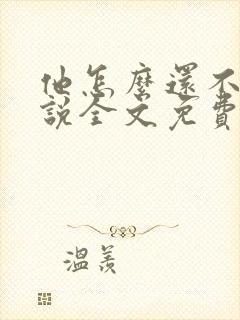 他怎麼還不
說全文免費
溫羨